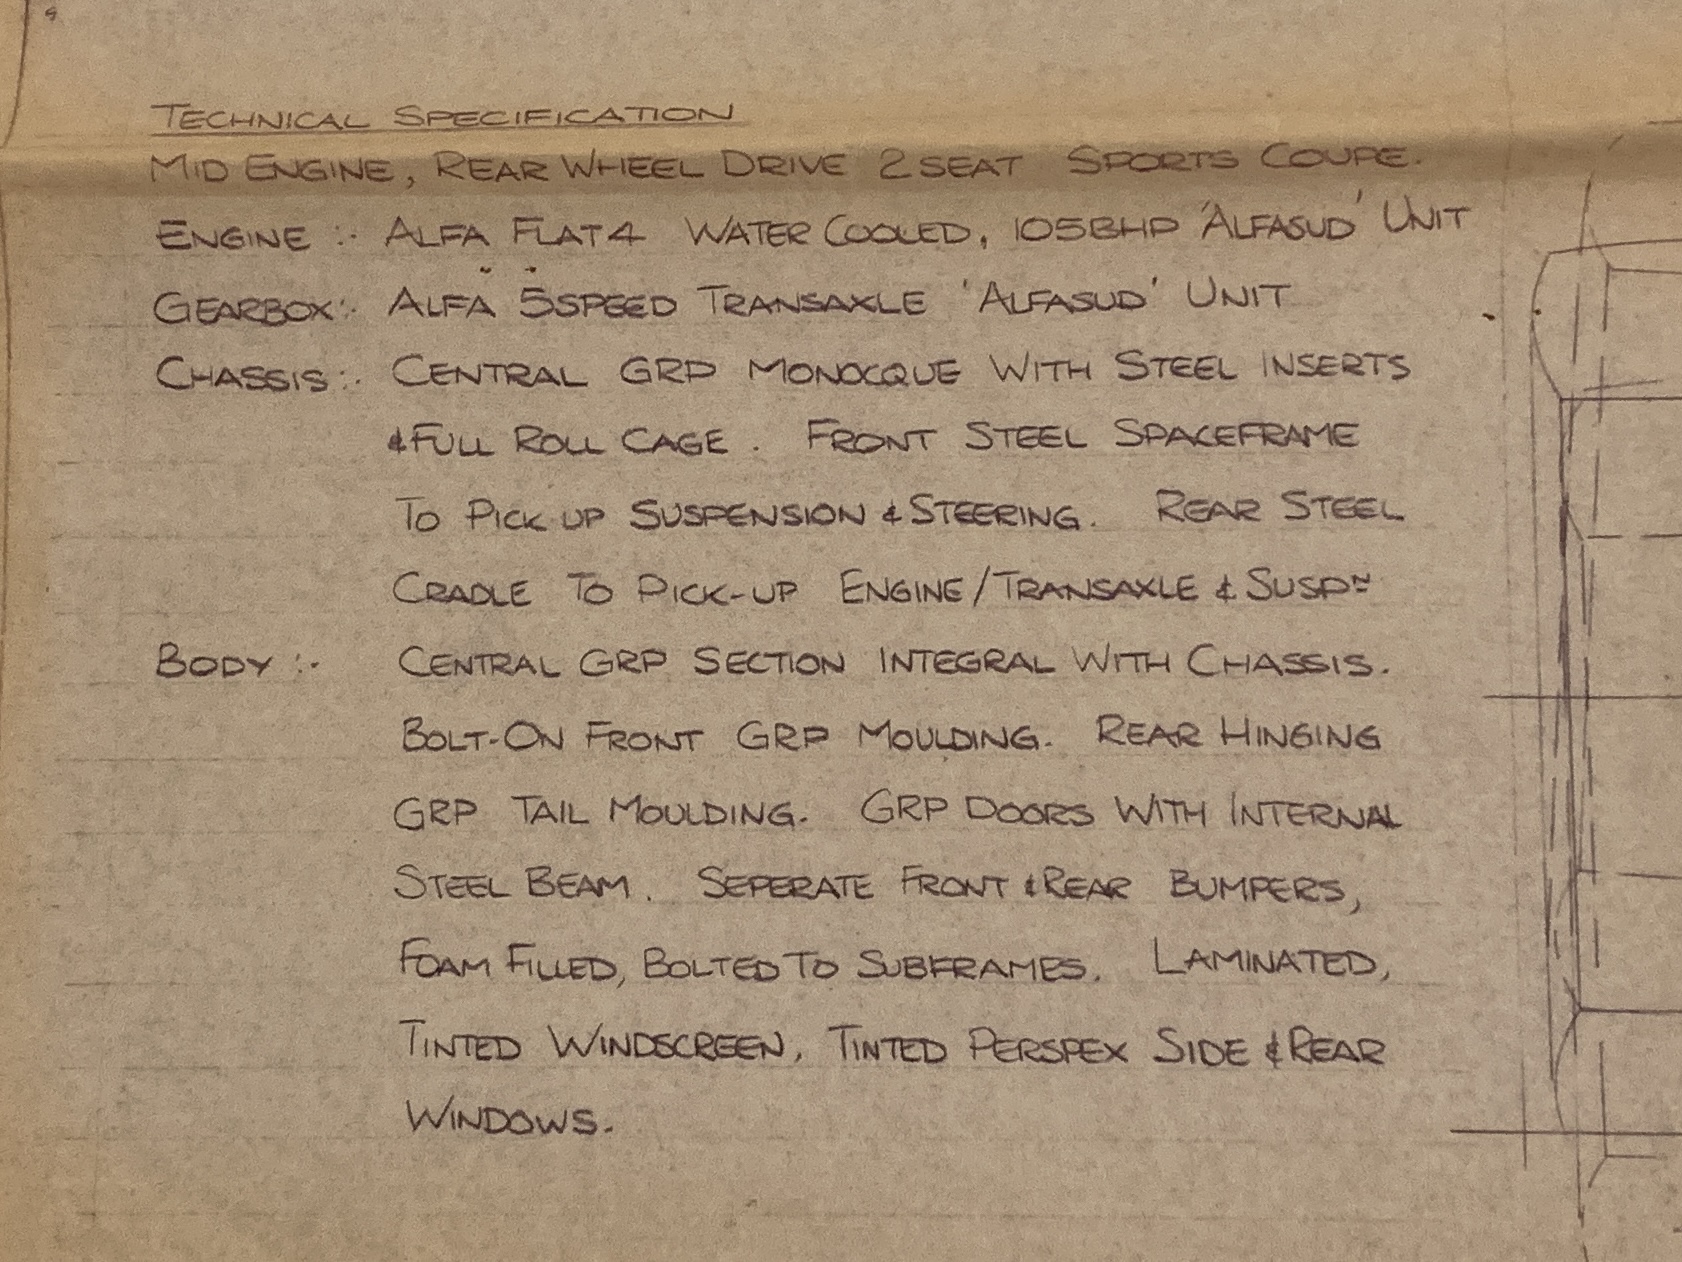 TECHNICAL SPECIFICATION
MID ENGINE, REAR WHEEL DRIVE 2 SEAT SPORTS COUPE.
ENGINE :- ALFA FLAT 4 WATER COOLED, 105BHP 'ALFASUD' UNIT
GEARBOX :- ALFA 5SPEED TRANSAXLE 'ALFASUD' UNIT
CHASSIS :- CENTRAL GRP MONOCQUE WITH STEEL INSERTS
& FULL ROLL CAGE. FRONT STEEL SPACEFRAME
TO PICK UP SUSPENSION & STEERING. REAR STEEL
CRADLE TO PICK-UP ENGINE/TRANSAXLE & SUSPN
BODY :- CENTRAL GRP SECTION INTEGRAL WITH CHASSIS.
BOLT-ON FRONT GRP MOULDING. REAR HINGING
GRP TAIL MOULDING. GRP DOORS WITH INTERNAL
STEEL BEAM. SEPERATE FRONT & REAR BUMPERS,
FOAM FILLED, BOLTED TO SUBFRAMES. LAMINATED,
TINTED WINDSCREEN, TINTED PERSPEX SIDE & REAR
WINDOWS.